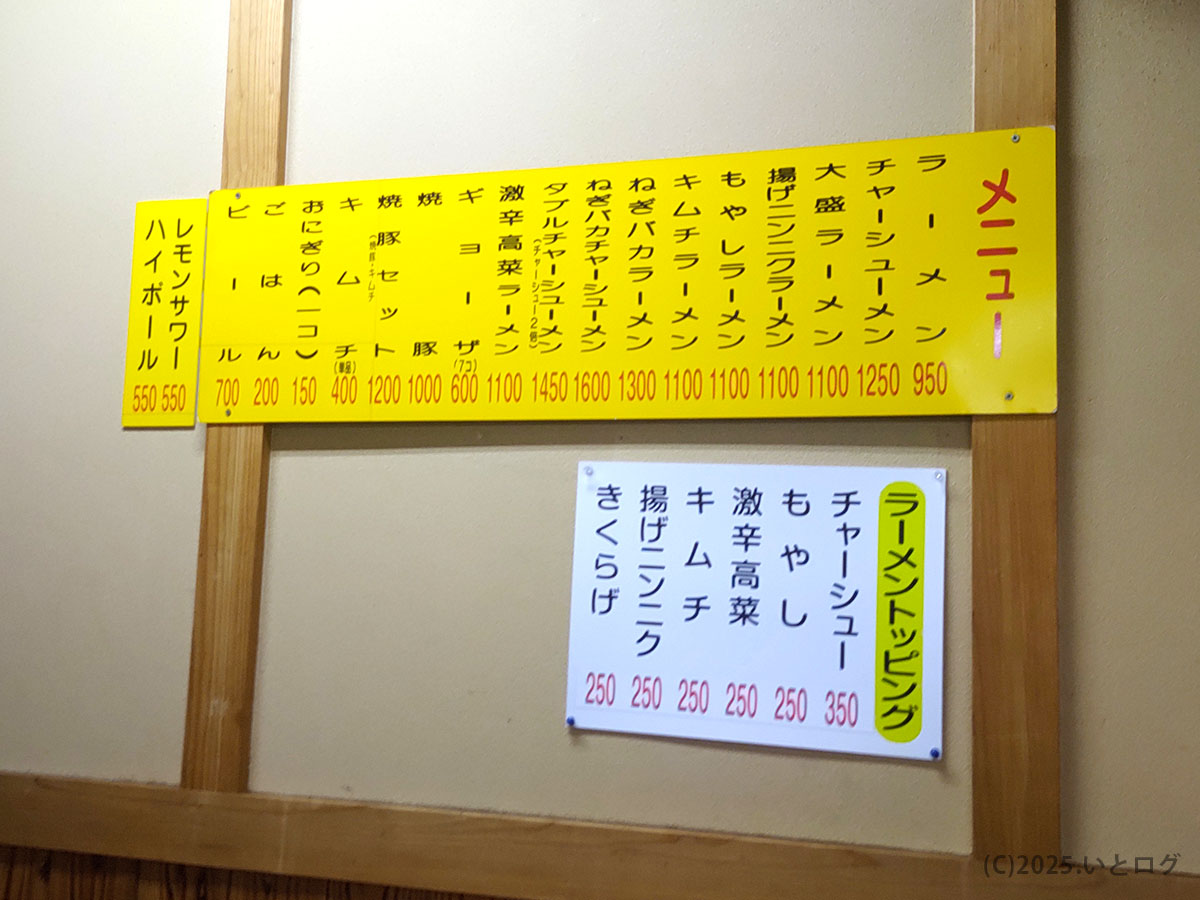 メニュー
ラーメン 950
チャーシューメン 1250
大盛ラーメン 1100
揚げニンニクラーメン 1100
もやしラーメン 1100
キムチラーメン 1100
ねぎバカラーメン 1300
ねぎバカチャーシューメン 1600
ダブルチャーシューメン(チャーシュー2倍) 1450
激辛高菜ラーメン 1100
ギョーザ(7コ) 600
焼豚 1000
焼豚セット(焼豚・キムチ 1200
キムチ(単品) 400
おにぎり(一コ) 150
ごはん 200
ビール 700
レモンサワー 550
ハイボール 550
ラーメントッピング
チャーシュー 350
もやし 250
激辛高菜 250
キムチ 250
揚げニンニク 250
きくらげ 250
(C)2025.いとログ